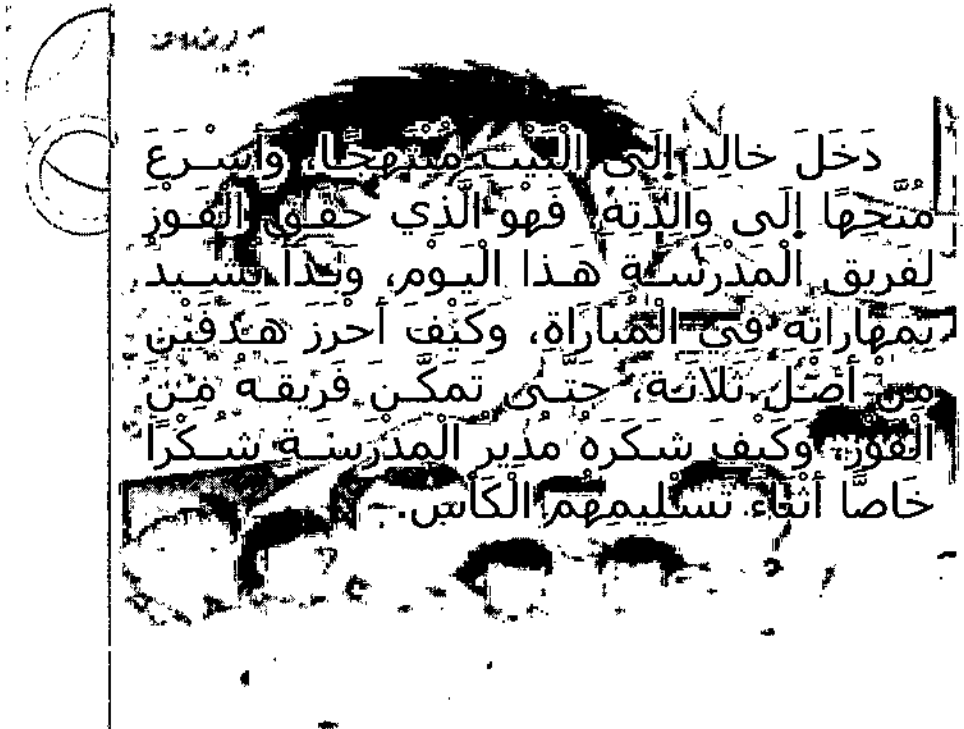 دَخَلَ خالِد إِلَى الْبَيْتِ مُبْتَهِجًا، وَأَسْـرَعَ
مُتَّجِهًا إِلَى والِدَتِهِ، فَهُوَ الَّذِي حَقَّـقَ الْفَـوْزَ
لِفَرِيقِ الْمَدْرَسَـةِ هَـذا الْيَـوْمِ، وَبَـدَأَ يُشـيدُ
بِمَهاراتِهِ فِي الْمُبَارَاةِ، وَكَيْفَ أَحْرَزَ هَـدَفَيْنِ
مِنْ أَصْـلِ ثَلاثَـةٍ، حَتَّـى تَمَكَّـنَ فَرِيقُـهُ مِـنَ
الْفَوْزِ، وَكَيْفَ شَكَرَهُ مُدِيرُ الْمَدْرَسَـةِ شُـكْرًا
خَاصًّا أَثْنَاءَ تَسْلِيمِهُمُ الْكَأْسَ.